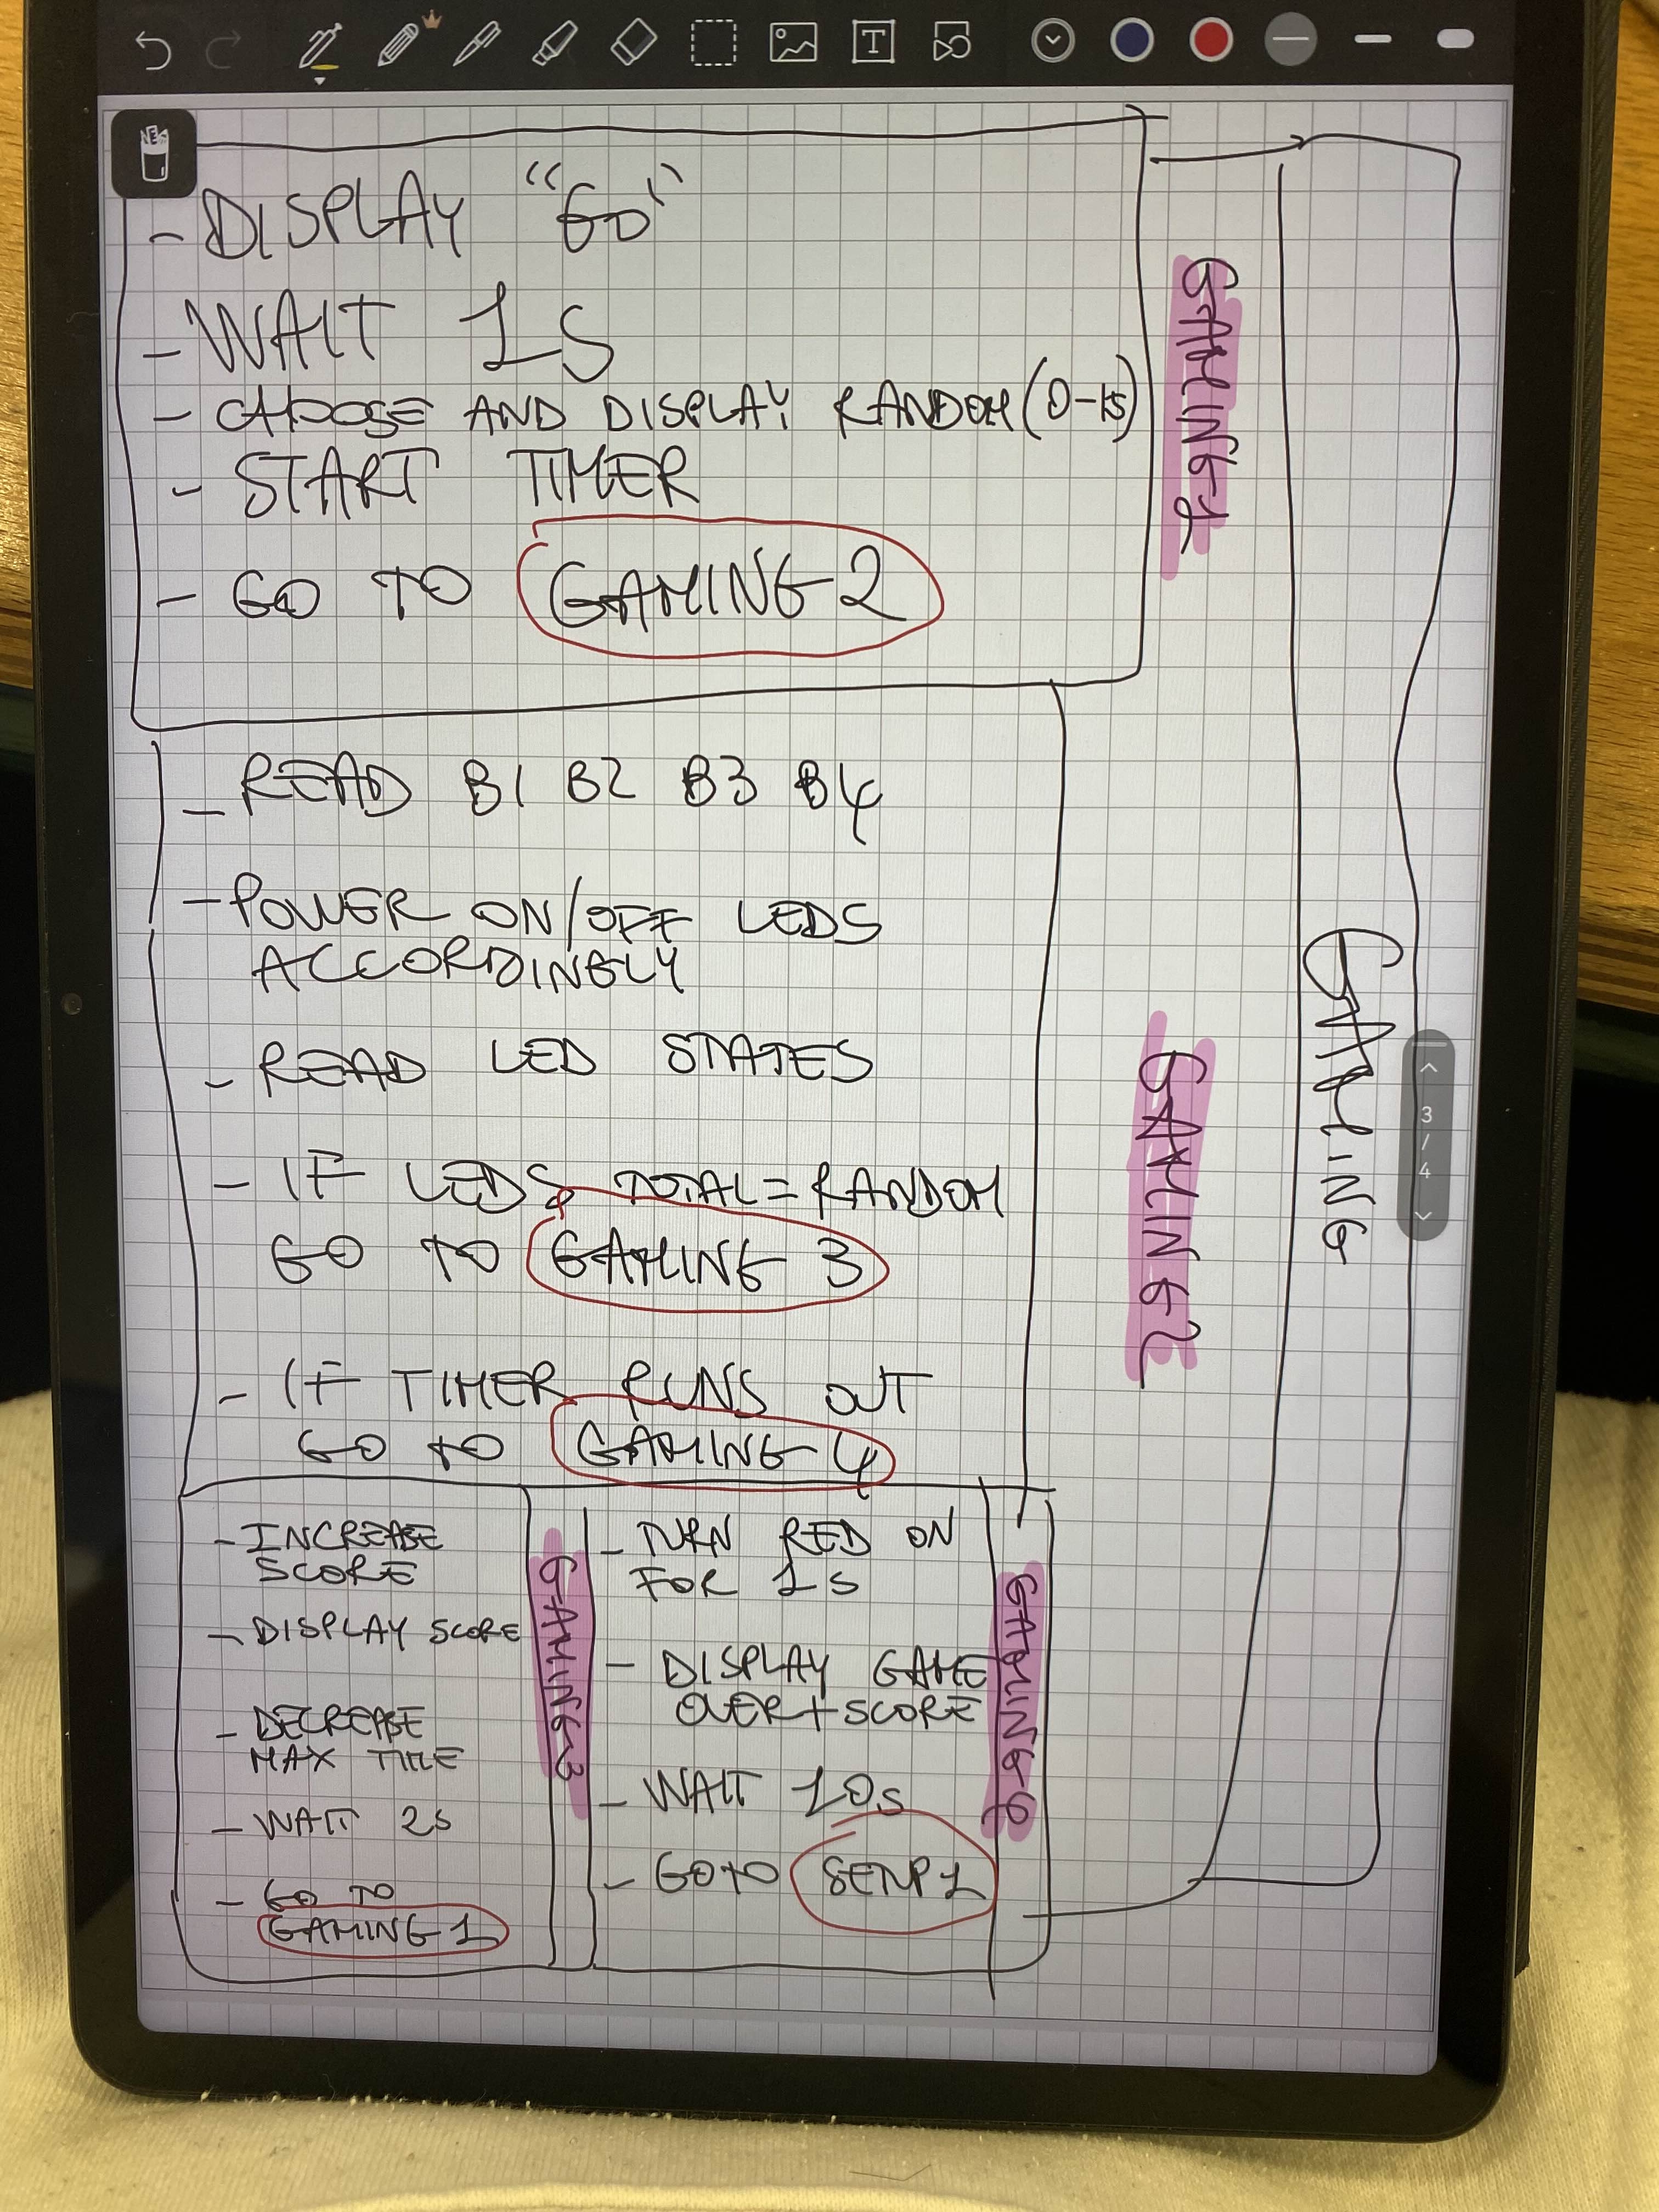 - DISPLAY "GO"
- WAIT 1s
- CHOOSE AND DISPLAY RANDOM (0-15)
- START TIMER
- GO TO GAMING 2
GAMING 1
- READ B1 B2 B3 B4
- POWER ON/OFF LEDS
ACCORDINGLY
- READ LED STATES
- IF LEDS TOTAL = RANDOM
GO TO GAMING 3
- IF TIMER RUNS OUT
GO TO GAMING 4
GAMING 2
GAMING
- INCREASE
SCORE
- DISPLAY SCORE
- DECREASE
MAX TIME
- WAIT 2s
- GO TO
GAMING 1
GAMING 3
- TURN RED ON
FOR 1s
- DISPLAY GAME
OVER + SCORE
- WAIT 10s
- GO TO SETUP 1
GAMING 4
3
/
4
T